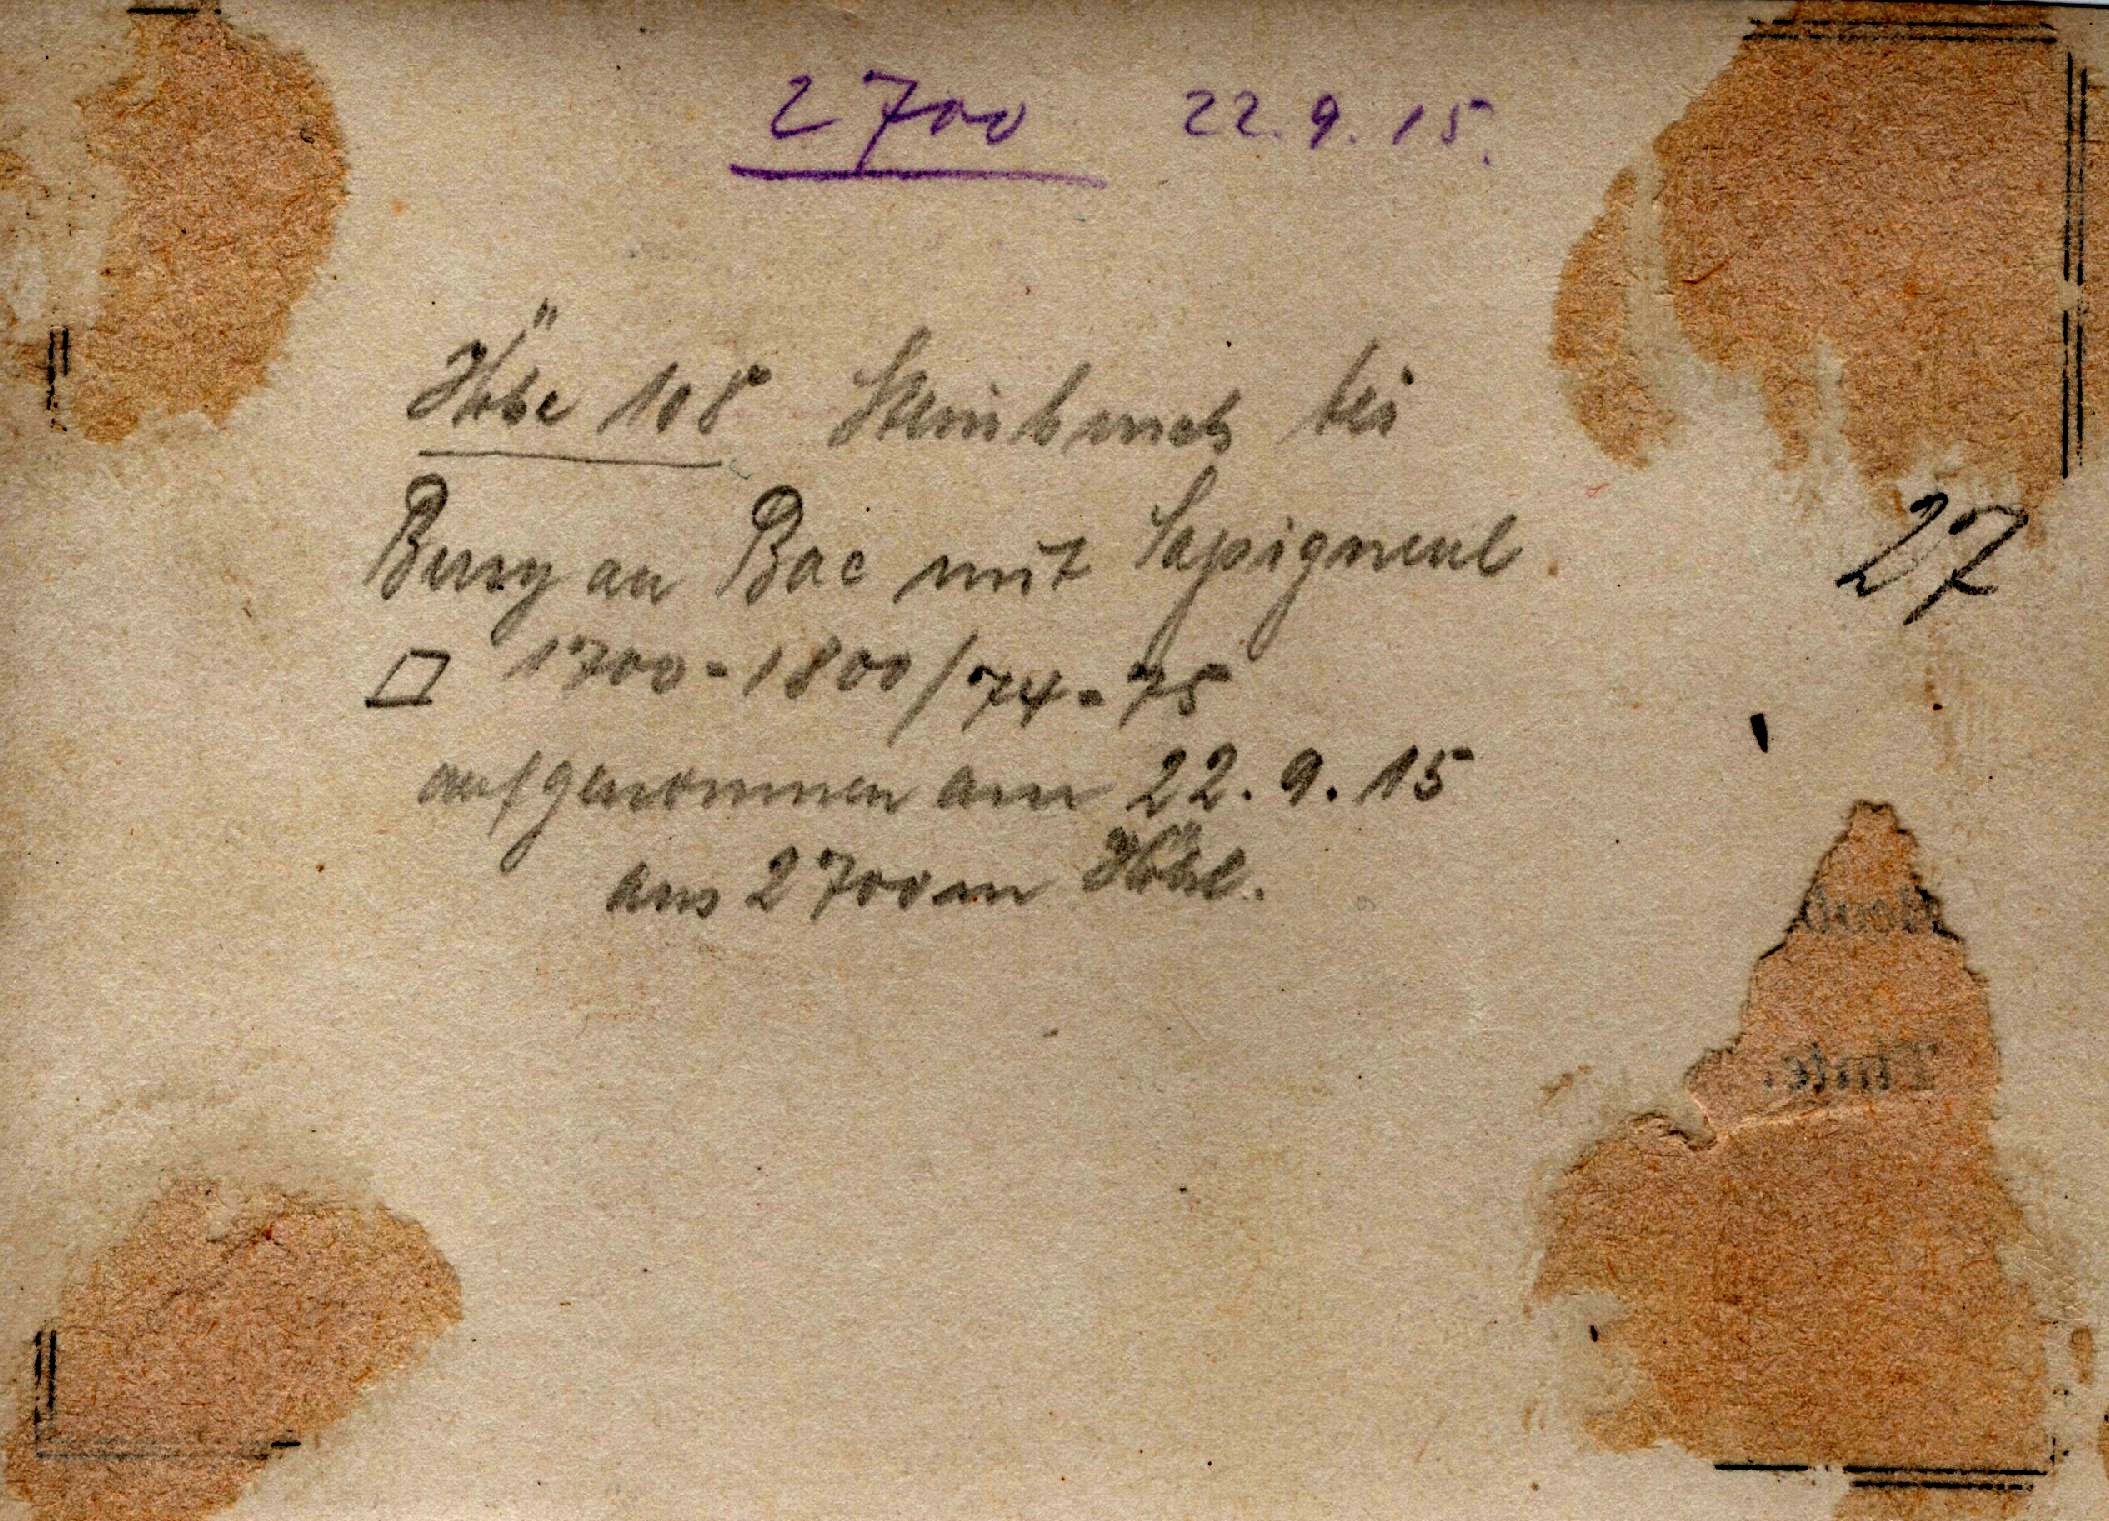 2700 22.9.15.
Höhe 108 Steinbruch bei
Berry au Bac mit Sapigneul.
▱ 1700-1800/74-75
27
aufgenommen am 22.9.15
aus 2700 m Höhe.
Tinte.